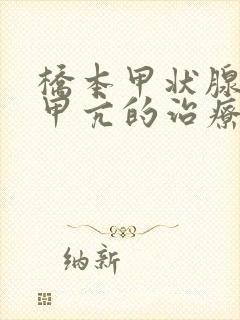 橋本甲状腺
甲亢的治療
纳新